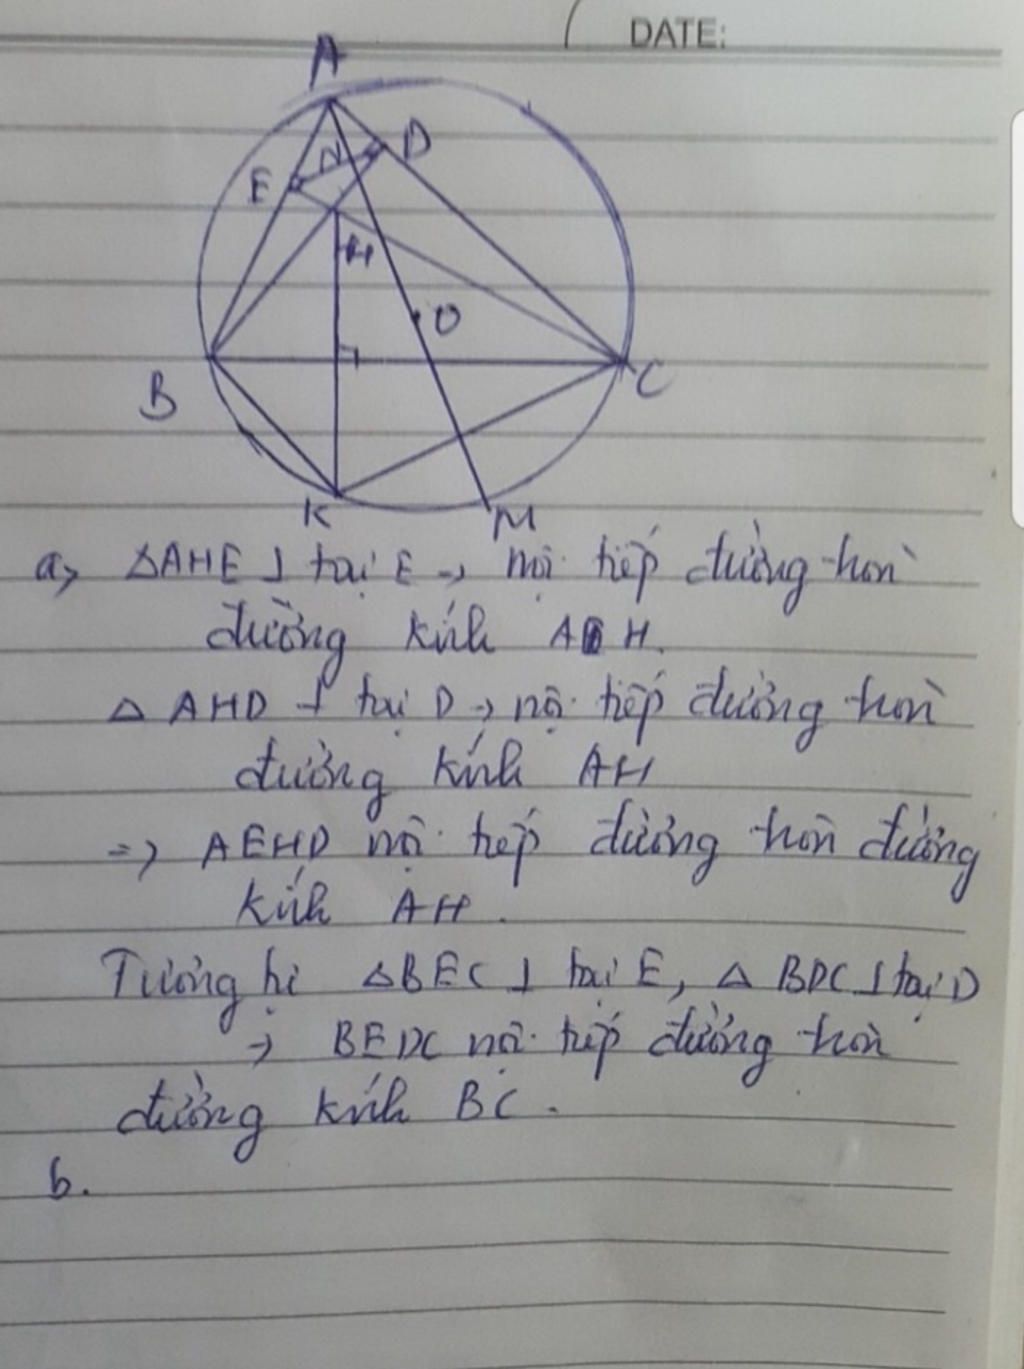 DATE:
A
D
N
E
H
O
B
C
K
M
a, ΔAHE ⊥ tại E → nội tiếp đường tròn
đường kính AH.
Δ AHD ⊥ tại D → nội tiếp đường tròn
đường kính AH
=> AEHD nội tiếp đường tròn đường
kính AH.
Tương tự ΔBEC ⊥ tại E, Δ BDC ⊥ tại D
→ BEDC nội tiếp đường tròn
đường kính BC.
b.